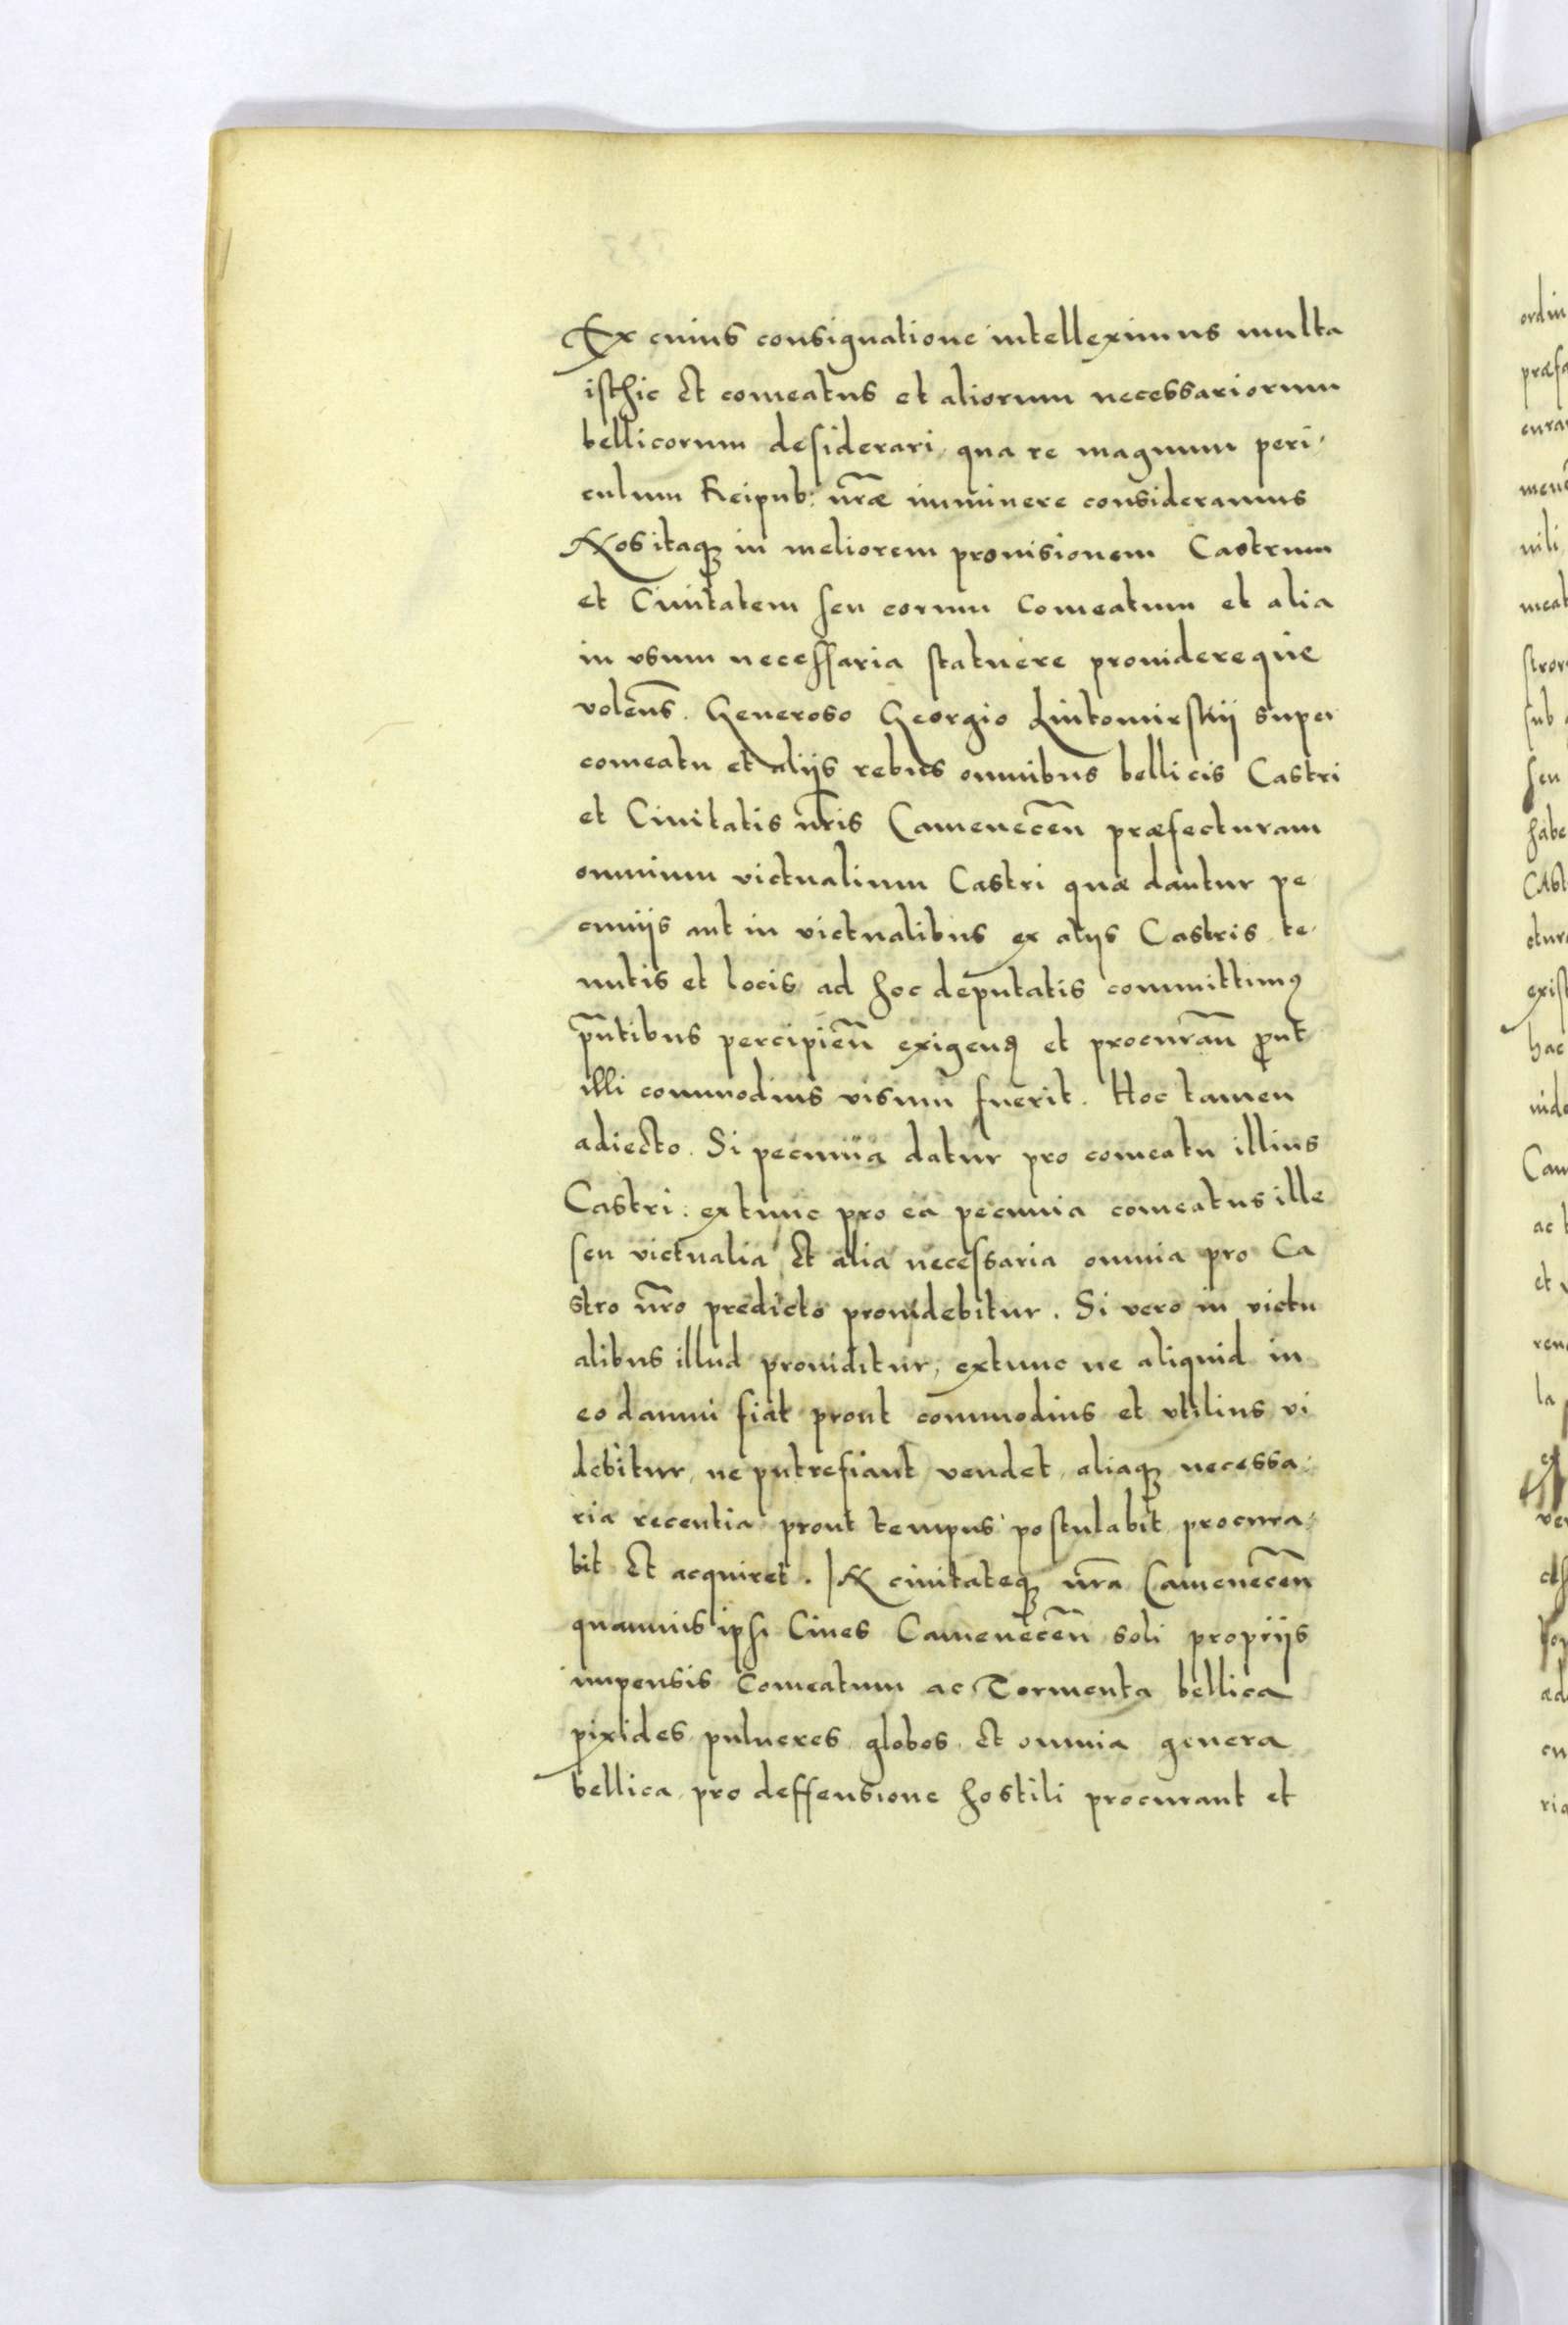 Ex cuius consignatione intelleximus multa
isthic et comeatus et aliorum necessariorum
bellicorum desiderari, qua re magnum peri,
culum Reipub: nr̃æ imminere consideramus
Nos itaq in meliorem prouisionem Castrum
et Ciuitatem seu eorum Comeatum et alia
in vsum necessaria statuere prouidereque
volen̄s. Generoso Georgio super
comeatu et alijs rebus omnibus bellicis Castri
et Ciuitatis nr̃is Camenecen̄ præfecturam
omnium victualium Castri quæ dantur pe
cunijs aut in victualibus ex alijs Castris te,
nutis et locis ad hoc deputatis committimꝰ
pn̄tibus percipien̄ exigenꝰ et procuran̄ prout
illi commodius visum fuerit. Hoc tamen
adiecto. Si pecunia datur pro comeatu illius
Castri: extunc pro ea pecunia comeatus ille
seu victualia et alia necessaria omnia pro Ca
stro nr̃o predicto prouidebitur. Si vero in victu
alibus illud prouiditur, extunc ne aliquid in
eo damni fiat prout commodius et vtilius vi
debitur, ne putrefiant vendet, aliaq necessa:
ria recentia prout tempus postulabit procura:
bit et acquiret. | A ciuitateq nr̃a Camenecen̄
quamuis ipsi Ciues Camenecen̄ soli proprijs
impensis Comeatum ac Tormenta bellica
pixides, pulueres, globos, et omnia genera
bellica, pro deffensione hostili procurant et